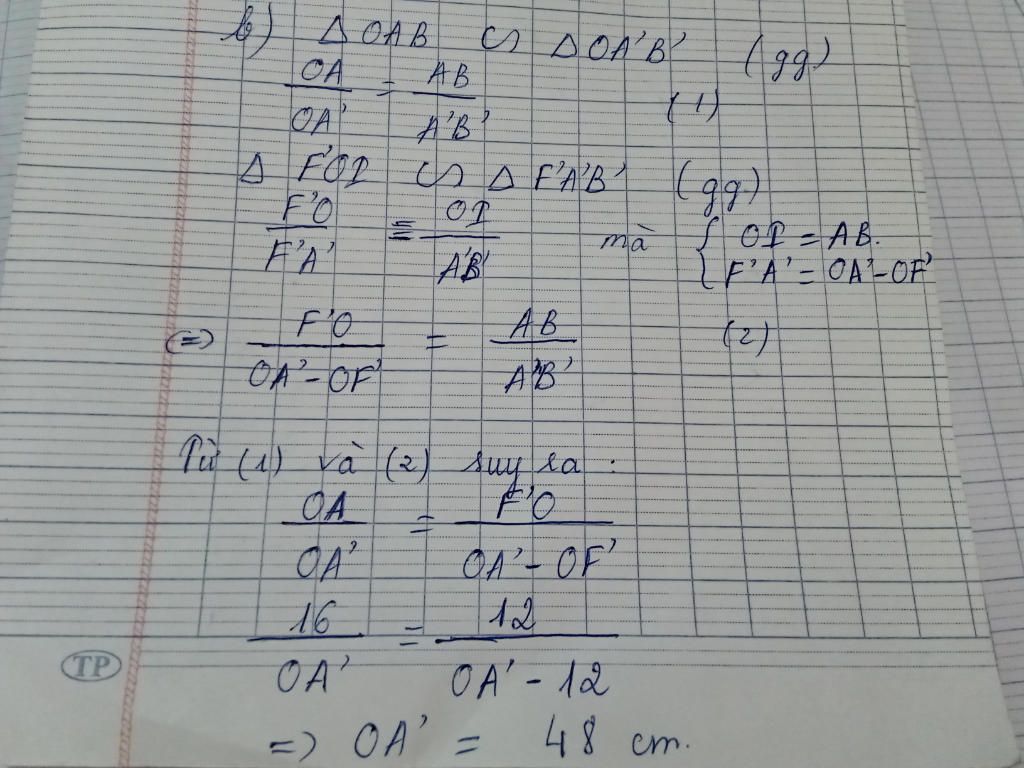 b) Δ OAB ∽ Δ OA'B' (gg)
OA/OA' = AB/A'B' (1)
Δ F'OI ∽ Δ F'A'B' (gg)
F'O/F'A' = OI/A'B' mà { OI = AB.
F'A' = OA' - OF'
(=) F'O/OA' - OF' = AB/A'B' (2)
Từ (1) và (2) suy ra :
OA/OA' = F'O/OA' - OF'
16/OA' = 12/OA' - 12
TP
=> OA' = 48 cm.